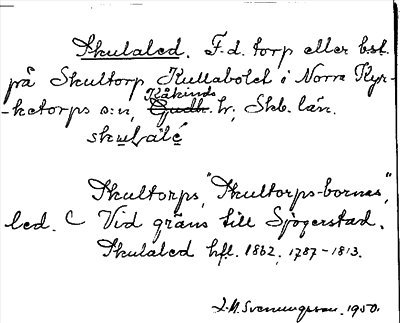 Skulaled. F.d. torp eller bst.
på Skultorp Kullabolet i Norra Kyr-
Kåkinds
-ketorps s:n, Gudh. hr, Skb. län.
skulalé
Skultorps, "Skultorps-bornas",
led. Vid gräns till Sjogerstad.
Skulaled hfl. 1862, 1787-1813.
J. M. Svenungsson. 1950.